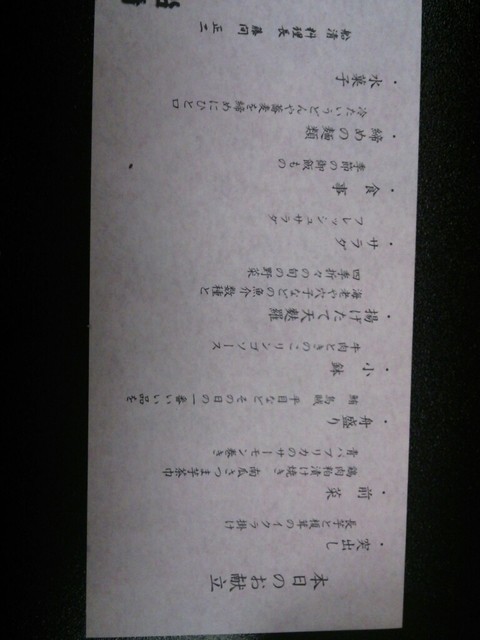 本日のお献立
・突出し
長芋と榎茸のイクラ掛け
・前菜
鶏肉粕漬け焼き 南瓜さつま芋茶巾
青パプリカのサーモン巻き
・舟盛り
鮪 烏賊 平目などその日の一番いい品を
・小鉢
牛肉ときのこ リンゴソース
・揚げたて天麩羅
海老や穴子などの魚介数種と
四季折々の旬の野菜
・サラダ
フレッシュサラダ
・食事
季節の御飯もの
・締めの麺類
冷たいうどんや蕎麦を締めにひと口
・水菓子
船清 料理長 藤間 正二